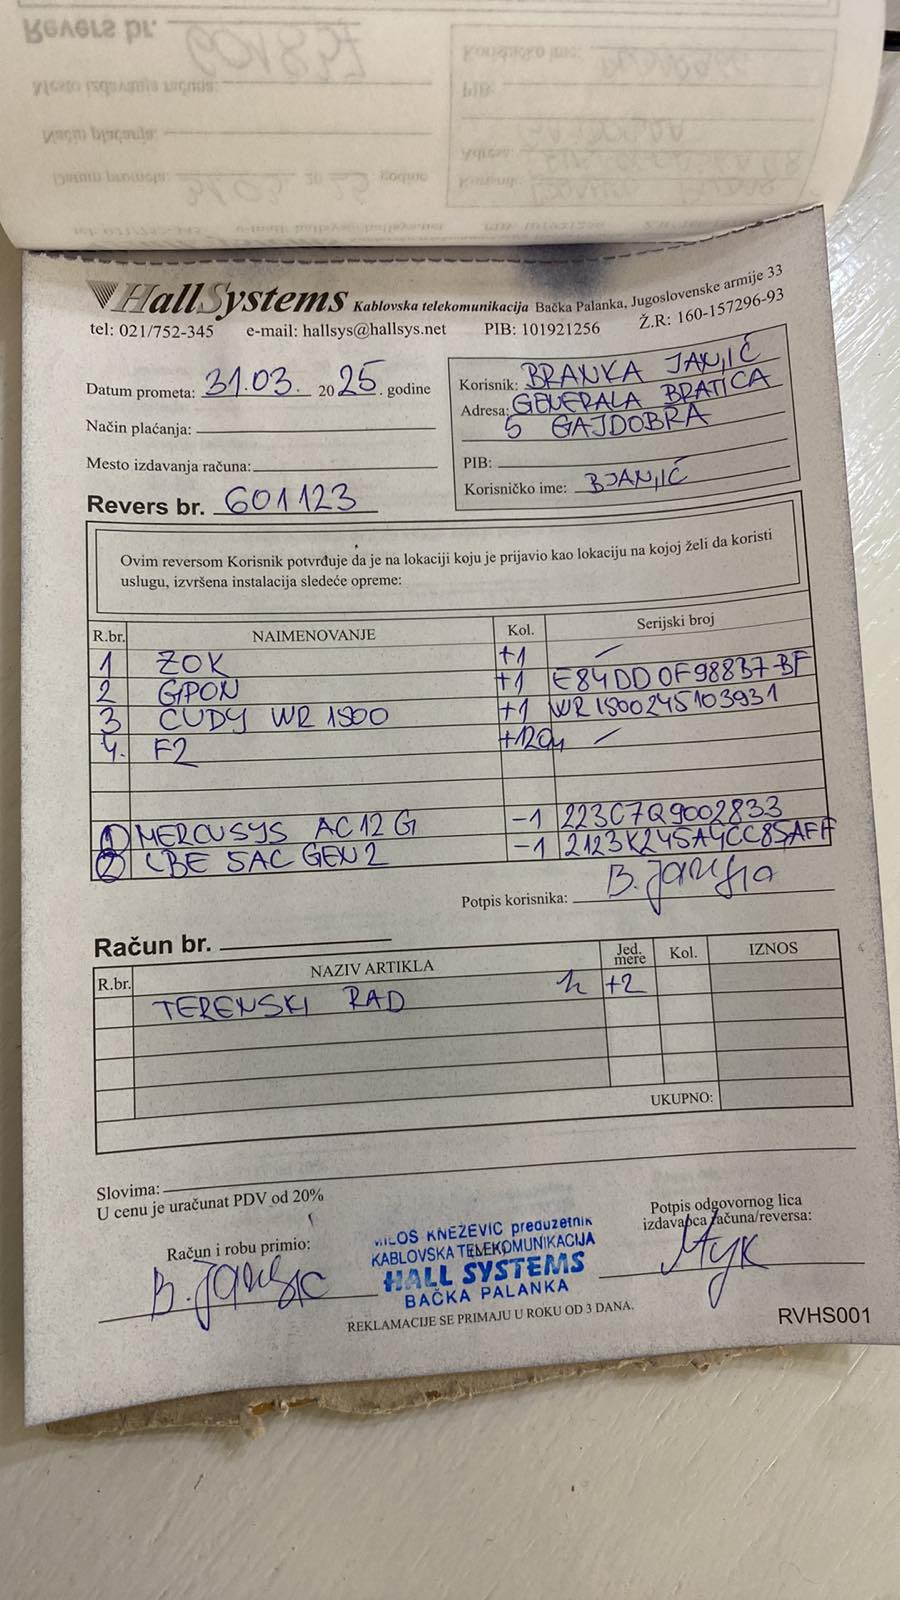 Revers br. 601837
Mesto izdavanja računa:
Način plaćanja:
Datum prometa: 31.03. 20 25. godine
Korisničko ime:
PIB:
Adresa:
Korisnik:
HallSystems Kablovska telekomunikacija Bačka Palanka, Jugoslovenske armije 33
tel: 021/752-345 e-mail: hallsys@hallsys.net PIB: 101921256 Ž.R: 160-157296-93
Datum prometa: 31.03. 20 25. godine
Način plaćanja:
Mesto izdavanja računa:
Revers br. 601123
Korisnik: BRANKA JANJIĆ
Adresa: GENERALA BRATICA
5 GAJDOBRA
PIB:
Korisničko ime: BJANJIĆ
Ovim reversom Korisnik potvrđuje da je na lokaciji koju je prijavio kao lokaciju na kojoj želi da koristi
uslugu, izvršena instalacija sledeće opreme:
R.br. NAIMENOVANJE Kol. Serijski broj
1 ZOK +1 –
2 GPON +1 E84DD0F98837-BF
3 CUDY WR 1500 +1 WR1500245103931
4. F2 +120m –
1 MERCUSYS AC12G -1 223C7Q9002833
2 LBE 5AC GEN2 -1
Potpis korisnika:
Račun br.
R.br. NAZIV ARTIKLA Jed. mere Kol. IZNOS
TERENSKI RAD h +2
UKUPNO:
Slovima:
U cenu je uračunat PDV od 20%
Račun i robu primio:
MILOŠ KNEŽEVIĆ preduzetnik
KABLOVSKA TELEKOMUNIKACIJA
HALL SYSTEMS
BAČKA PALANKA
Potpis odgovornog lica
izdavaoca računa/reversa:
REKLAMACIJE SE PRIMAJU U ROKU OD 3 DANA.
RVHS001